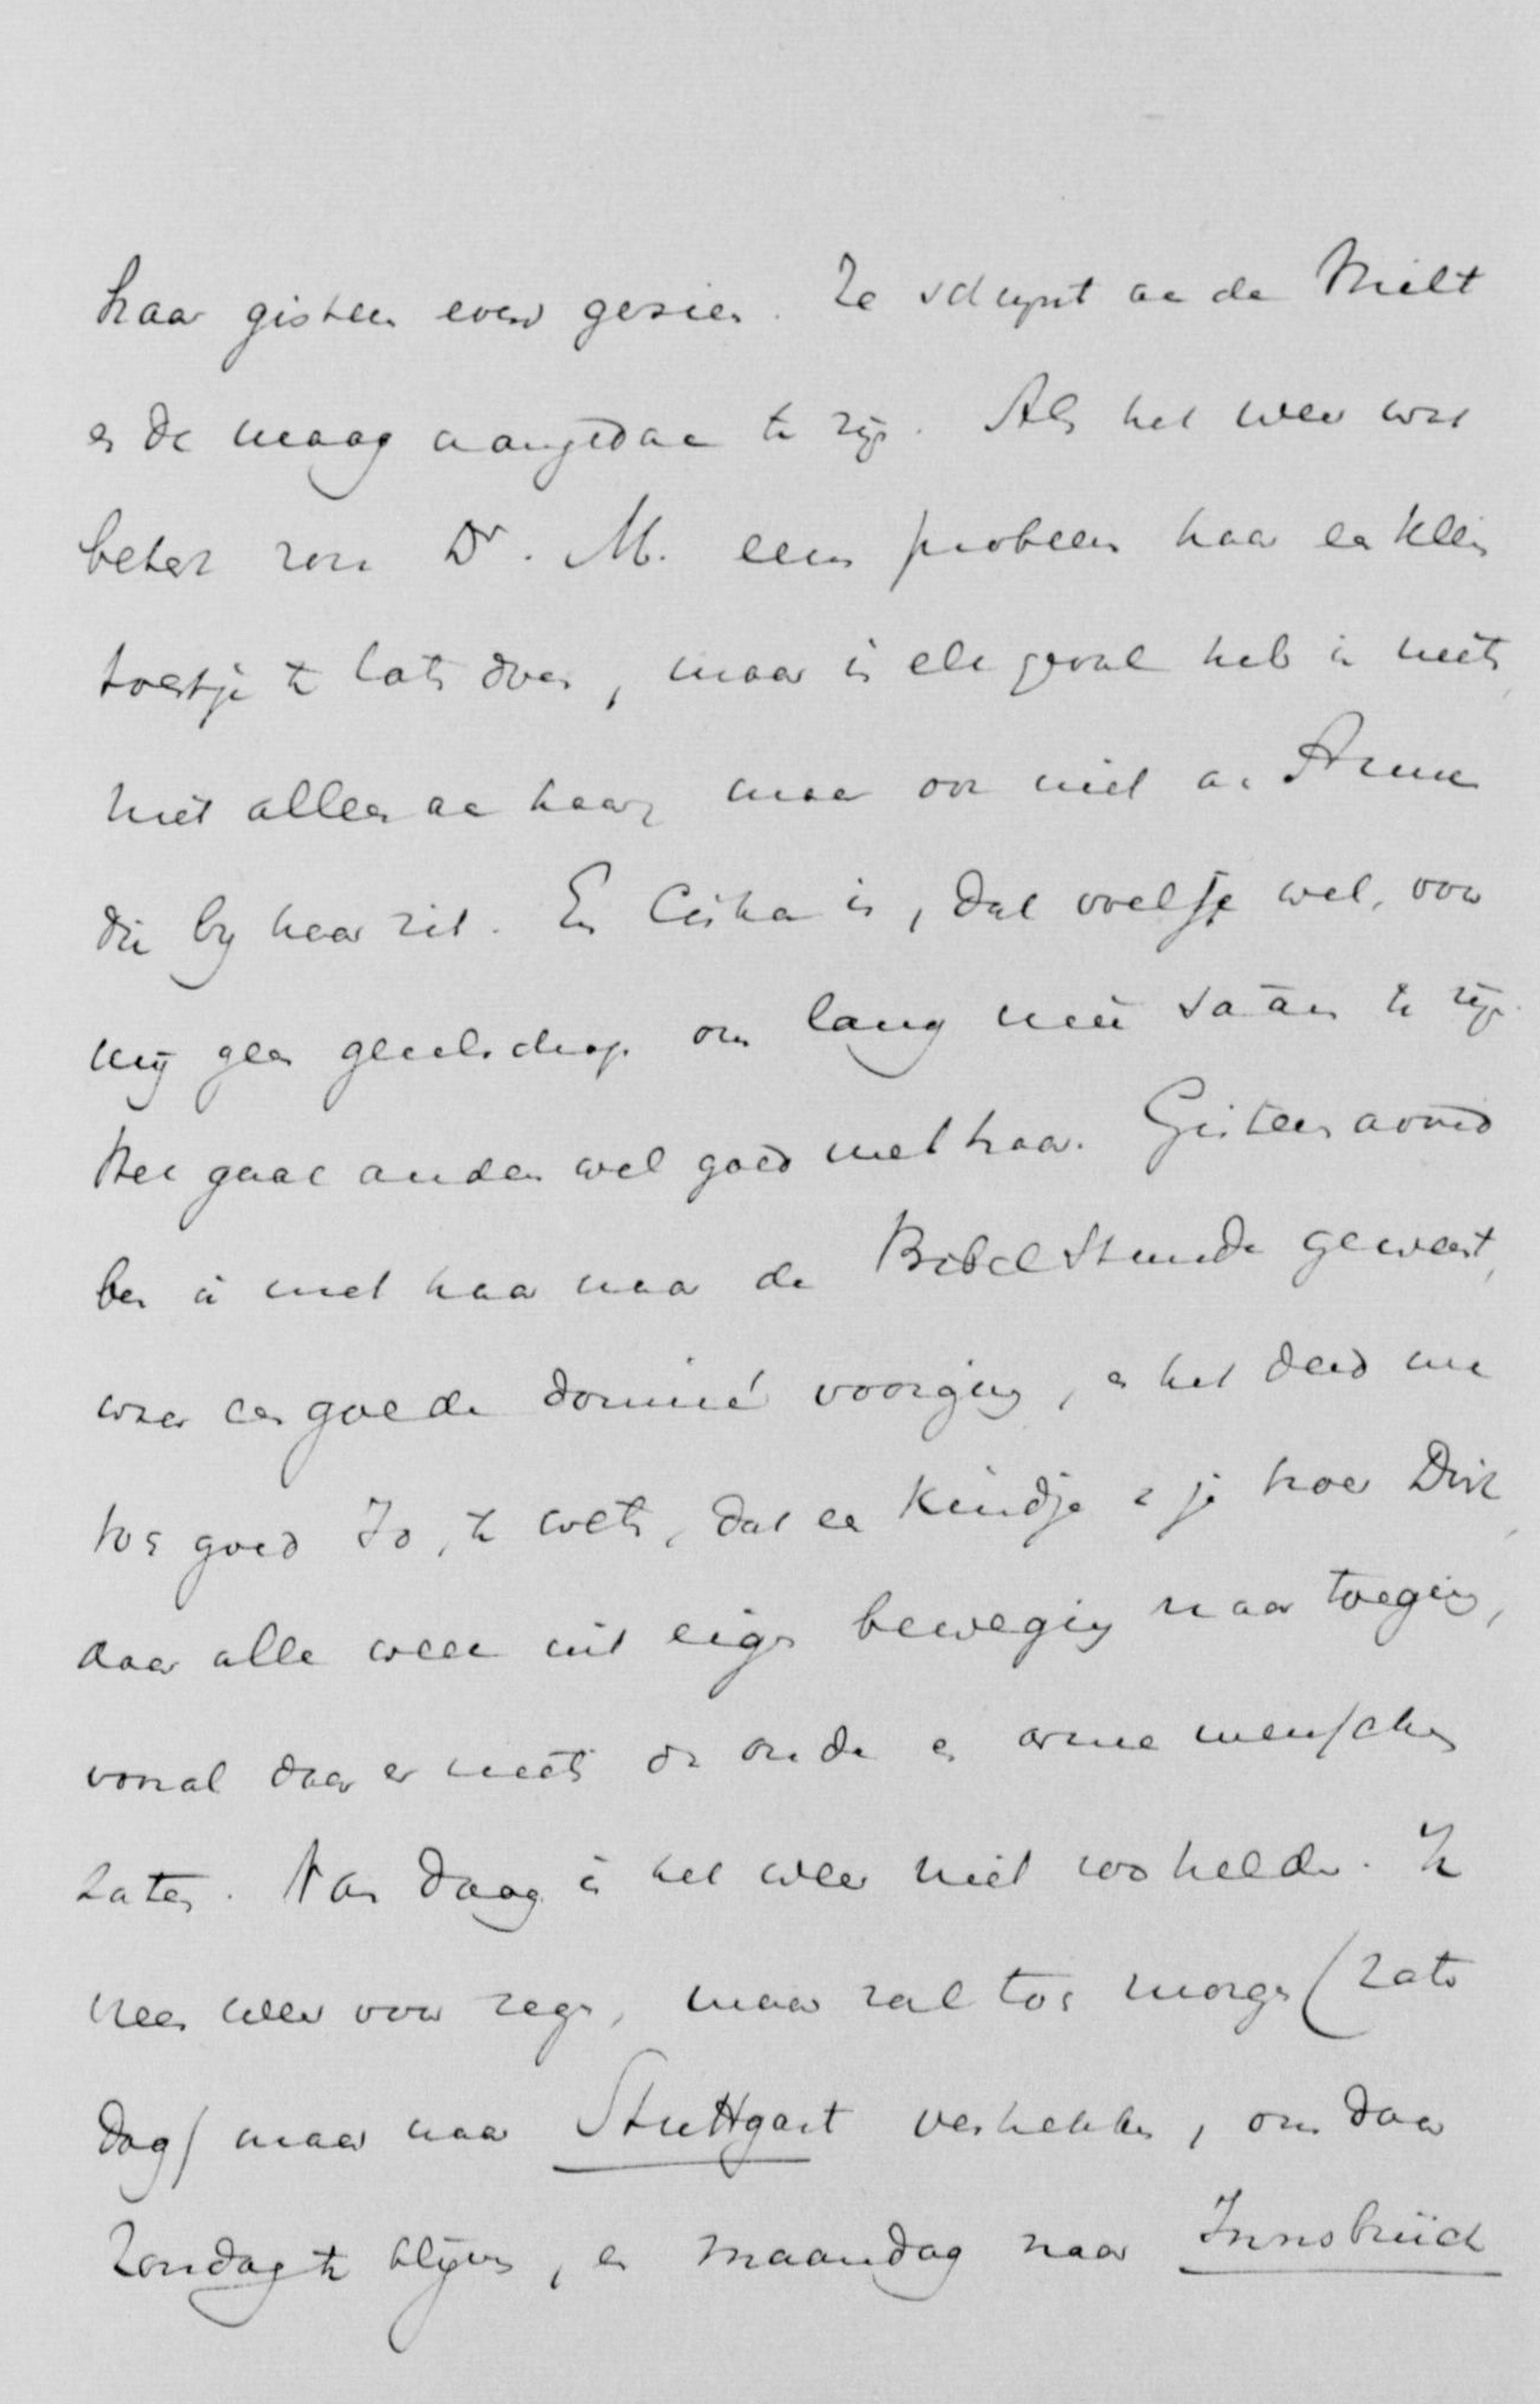 haar gisteren even gezien. Ze schynt aan de Milt
en de maag aangedaan te zijn. Als het weer wat
beter zou Dr. M. eens probeeren haar een klein
toertje te laten doen, maar in elk geval heb ik niets
niet alleen aan haar, maar ook niet aan Anna
die by haar zit. En Ciska is, dat voel je wel, voor
mij geen gezelschap om lang mee saâm te zijn.
Het gaat anders wel goed met haar. Gisteren avond
ben ik met haar naar de Bibelstunde geweest,
waar een goede dominé voorging, en het deed me
toch goed Jo, te weten, dat een kindje als jij hoe Dik
daar alle weer uit eigen beweging naar toeging,
vooral daar er niets dan oude en arme menschen
zaten. Van daag is het weer niet zoo helder. Ik
vrees weer voor regen, maar zal toch morgen (Zater
dag) maar naar Stuttgart vertrekken, om daar
Zondag te blijven, en Maandag naar Innsbrück